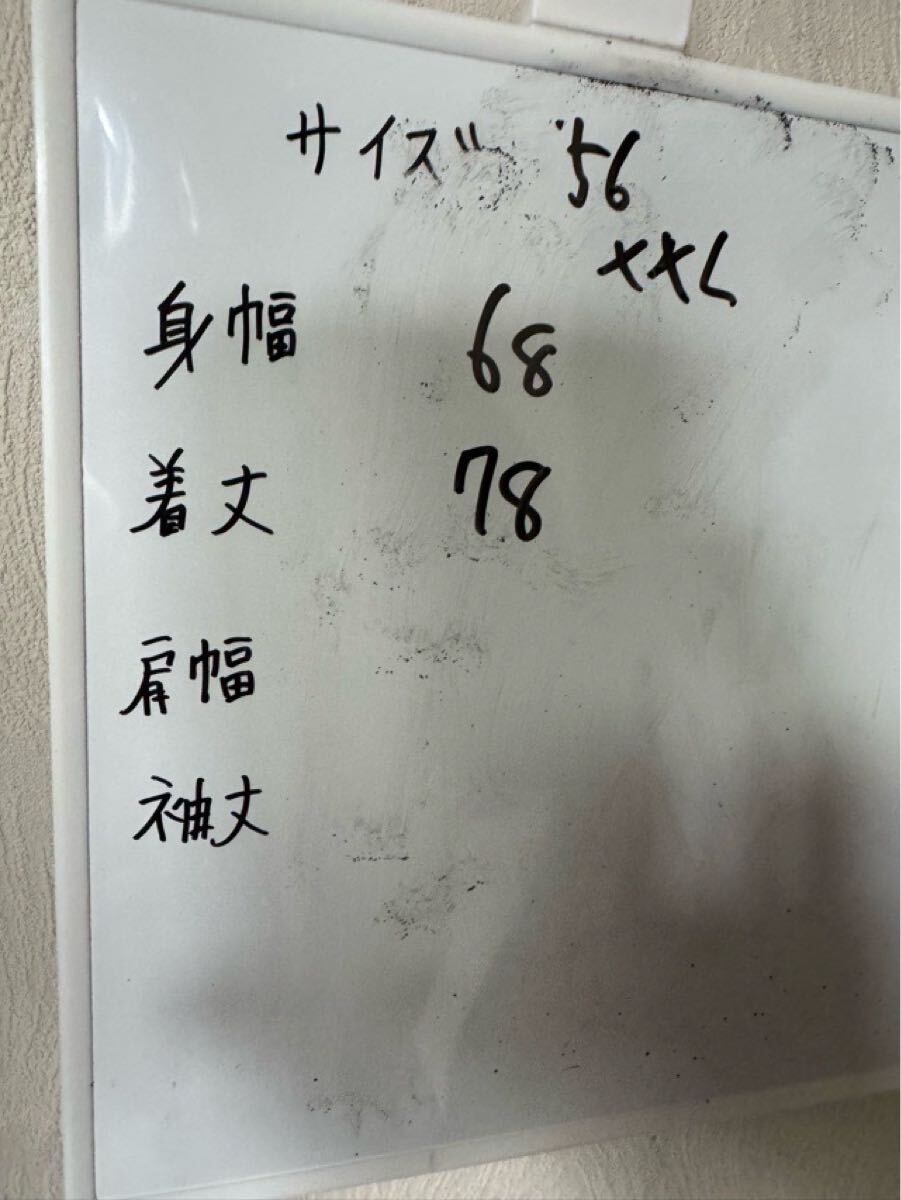 サイズ 56
XXL
身幅 68
着丈 78
肩幅
袖丈